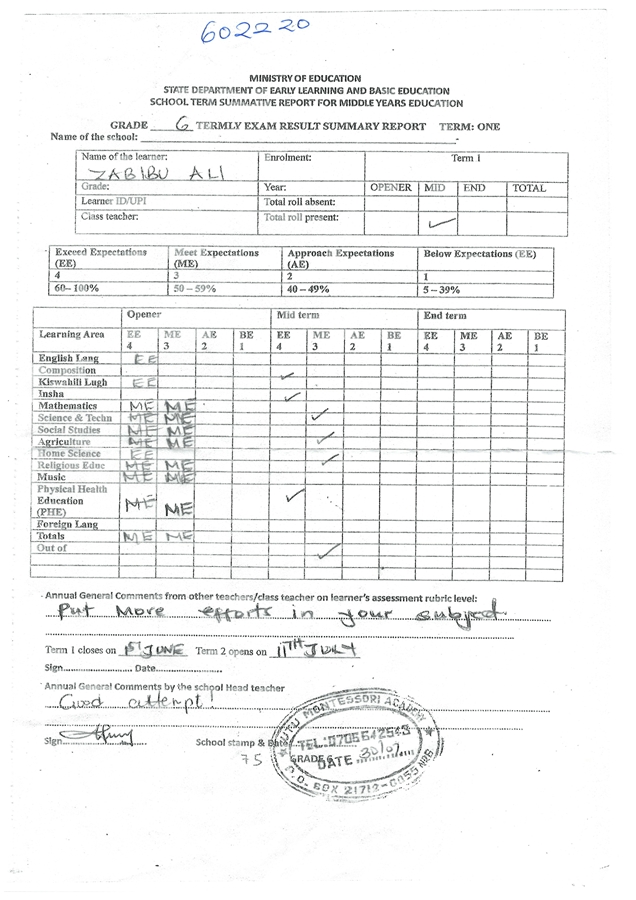 602220
MINISTRY OF EDUCATION
STATE DEPARTMENT OF EARLY LEARNING AND BASIC EDUCATION
SCHOOL TERM SUMMATIVE REPORT FOR MIDDLE YEARS EDUCATION
GRADE 6 TERMLY EXAM RESULT SUMMARY REPORT TERM: ONE
Name of the school:
Name of the learner: Enrolment: Term 1
ZABIBU ALI
Grade: Year: OPENER MID END TOTAL
Learner ID/UPI Total roll absent:
Class teacher: Total roll present: ✓
Exceed Expectations Meet Expectations Approach Expectations Below Expectations (EE)
(EE) (ME) (AE)
4 3 2 1
60–100% 50 – 59% 40 – 49% 5 – 39%
Opener Mid term End term
Learning Area EE ME AE BE EE ME AE BE EE ME AE BE
4 3 2 1 4 3 2 1 4 3 2 1
English Lang EE
Composition ✓
Kiswahili Lugh EE
Insha ✓
Mathematics ME ME
Science & Techn ME ME ✓
Social Studies ME ME
Agriculture ME ME ✓
Home Science EE
Religious Educ ME ME ✓
Music ME ME
Physical Health
Education ME ME ✓
(PHE)
Foreign Lang
Totals ME ME
Out of ✓
Annual General Comments from other teachers/class teacher on learner's assessment rubric level:
Put More efforts in your subject
Term 1 closes on 1ST JUNE Term 2 opens on 11TH JULY
Sign Date
Annual General Comments by the school Head teacher
Good attempt!
Sign School stamp & Date
75
MONTESSORI ACADEMY
TEL: 0705642543
GRADE 6
DATE 30/07
P.O. BOX 21712-0055 NRB